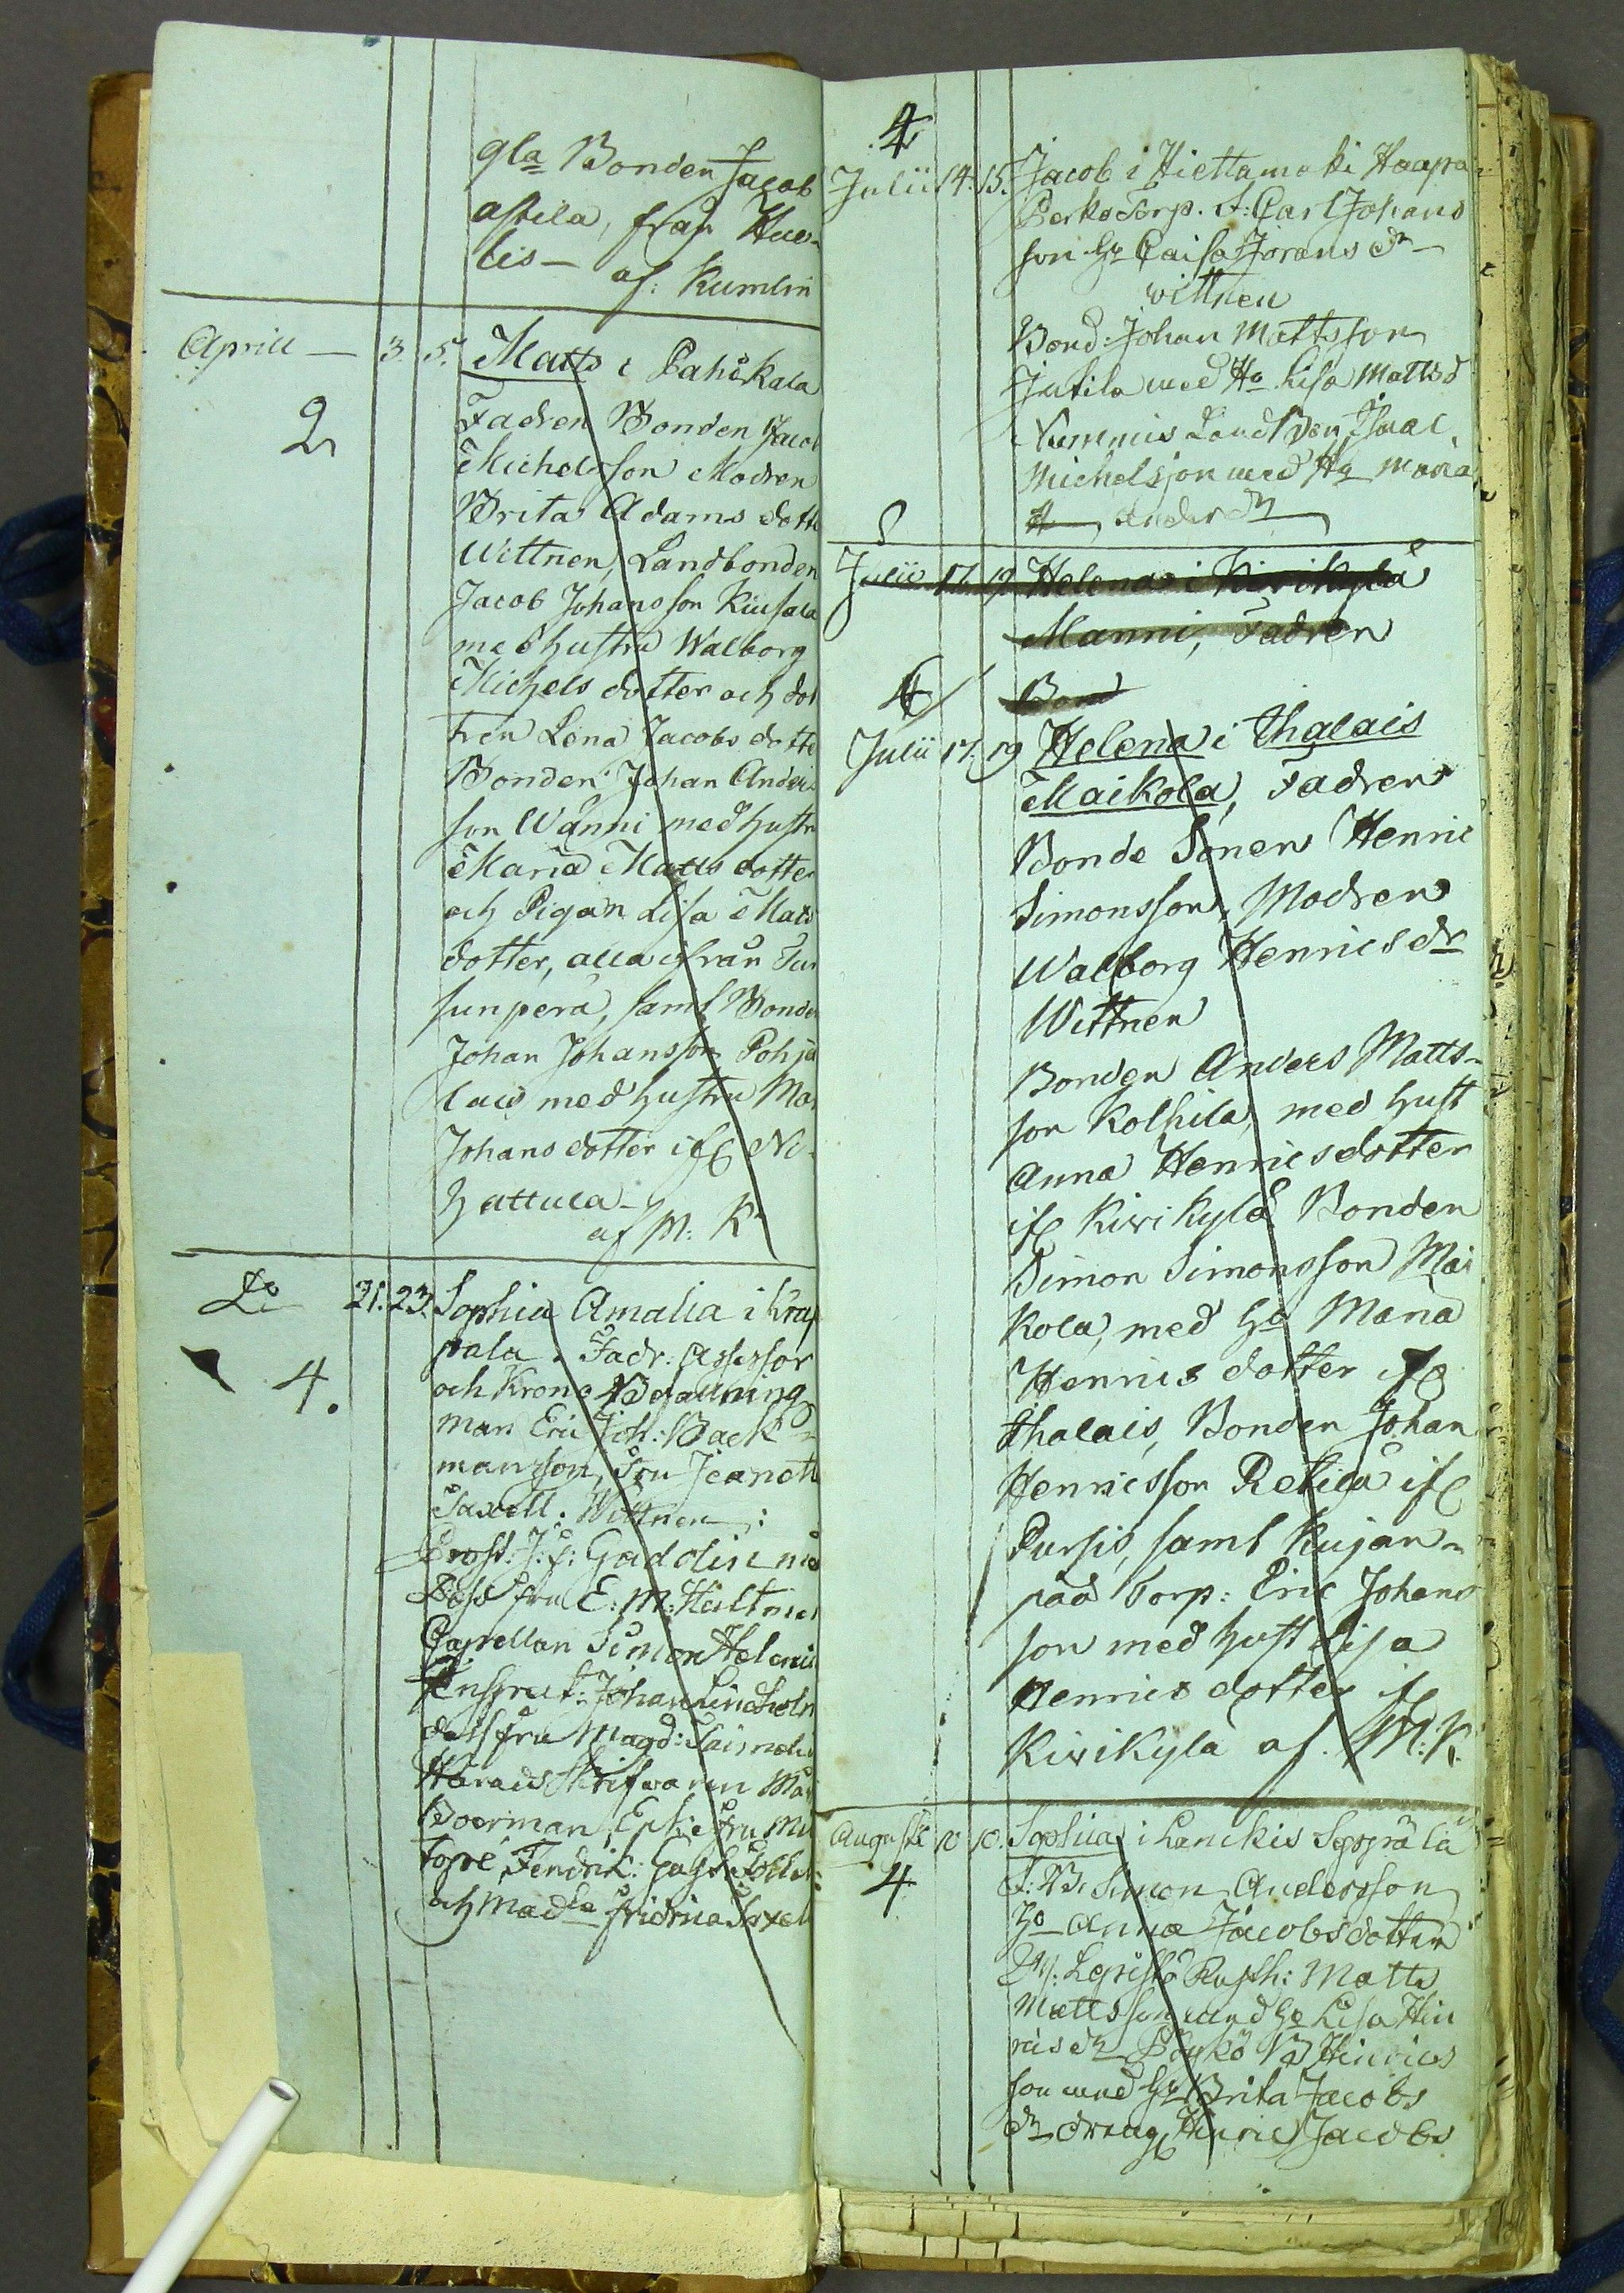 gla Bonden Jacob
astila, från Hue-
lis - af: Kumlin
Aprill - 3. 5. Matts i Pahikala
2
Fadren Bonden Jacob
Michelsson Modren
Brita Adams dotte
Wittnen, Landbonden
Jacob Johansson Kiusala
med hustru Walborg
Michels dotter och dot
tren Lena Jacobs dotte
Bonden Johan Anders
son Wänni med hustr
Maria Matts dotter
och Pigan Lisa Mats
dotter, alla ifrån Tur
sunperä, samt Bonden
Johan Johansson Pohja
lais med hustru Mar
Johans dotter ifr Ni-
hattula
af M: K
Do 21. 23. Sophia Amalia i Krap
4.
pala. Fadr: Assessor
och Krono Befallnings
man Eric Joh: Back-
mansson, Fru Jeanett
Saxell. Wittnen:
Prost. J: f: Gadolin med
Dess fru E: M: Hultma
Capellan Simon Helenius
Inspect: Johan Lindholm
dess fru Magd: Saxnelin
Härads Skrifvaren Mat
Boerman, Enk: fru Ma
topré, Fendrik: Gust:
och Mad:la Fridrica Saxell
4
Julii 14. 15. Jacob i Hiettamäki Haapa
Perko Torp. F: Carl Johans
son Ho Caisa Jörans dr
wittnen
Bond: Johan Mattsson
Jutila med Ho Lisa Matts d
Nummis Landbon Isaac
Michelsson med Ho Maria
Anders dr
Julii 17. 19. Helena i Kirikylä
Manni, Fadren
4 Bond
Julii 17. 19 Helena i Thalais
Maikola, Fadren
Bonde Sonen Henric
Simonsson, Modren
Walborg Henrics dr
Wittnen
Bonden Anders Matts-
son Kolhila, med hust
Anna Henricsdotter
ifr Kirikylä Bonden
Simon Simonsson Mai
kola, med Ho Maria
Henrics dotter ifr
thalais, Bonden Johan
Henricsson Retila ifr
Pursis, samt Kujan-
pää Torp: Eric Johans
son med hust Lisa
Henrics dotter ifr
Kirikyla af. M: K.
Augusti 10 10. Sophia i Lanckis Seppälä
4
F: B. Simon Andersson
Ho Anna Jacobsdotter
W: Lepistö Rusth: Matts
Mattsson med Ho Lisa Hin
rics dr Pöykö B Hinrics
son med Ho Brita Jacobs
dr dreng Hinric Jacobs